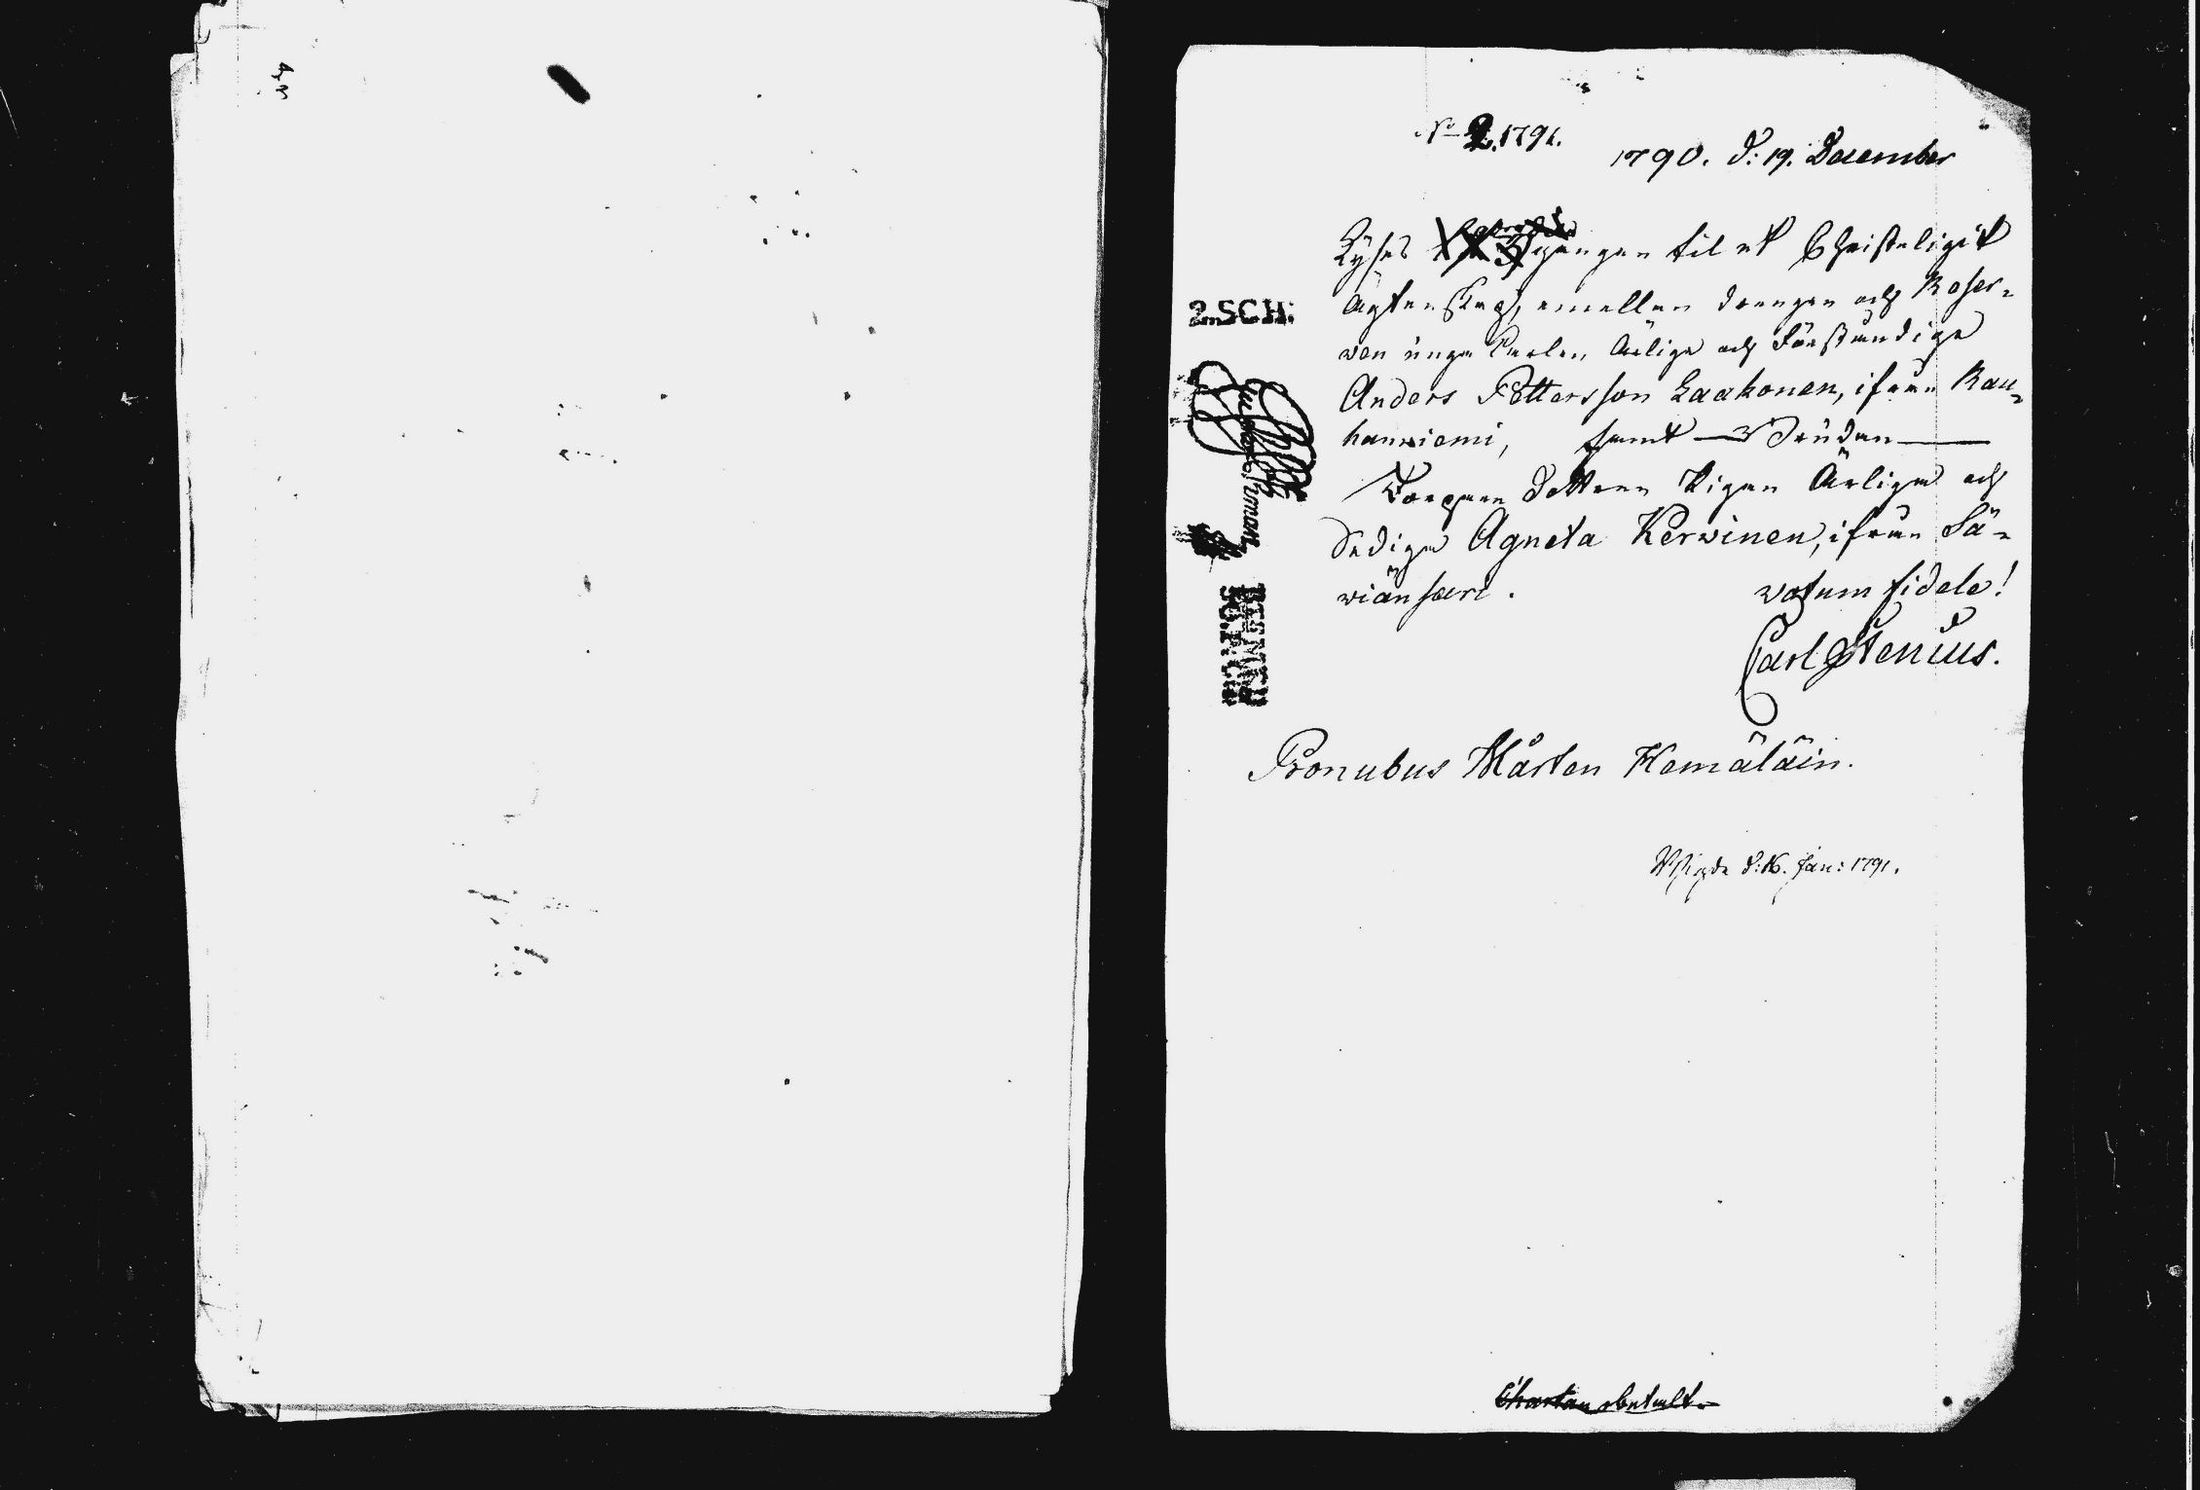 No 2. 1791.
1790. d: 19. December
Lyses gången til et Christeligit
Ägtenskap, emellan drengen och Reser-
ven unga Carlen, Ärlige och Förståndige
Anders Pettersson Laakonen, ifrån Rau-
haniemi, samt Bruden
Torpare dottren Pigan Ärliga och
Sediga Agneta Kerwinen, ifrån Sä-
wiänsari. votum fidele!
Carl Stenius.
Pronubus Mårten Hemäläin.
Wigde d: 16. Jan: 1791.
Chartan betalt
2.SCH: